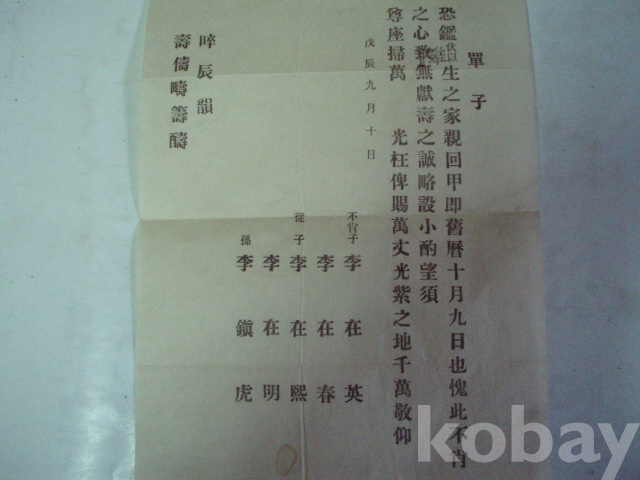 單子
恐鑑伏以生之家親回甲即舊曆十月九日也愧此不肖
之心無獻壽之誠略設小酌望須
尊座掃萬 光枉俾賜萬丈光紫之地千萬敬仰
戊辰九月十日
不肖子 李在英
李在春
從子 李在熙
李在明
孫 李鎭虎
晬辰韻
壽儔疇籌醻
kobay